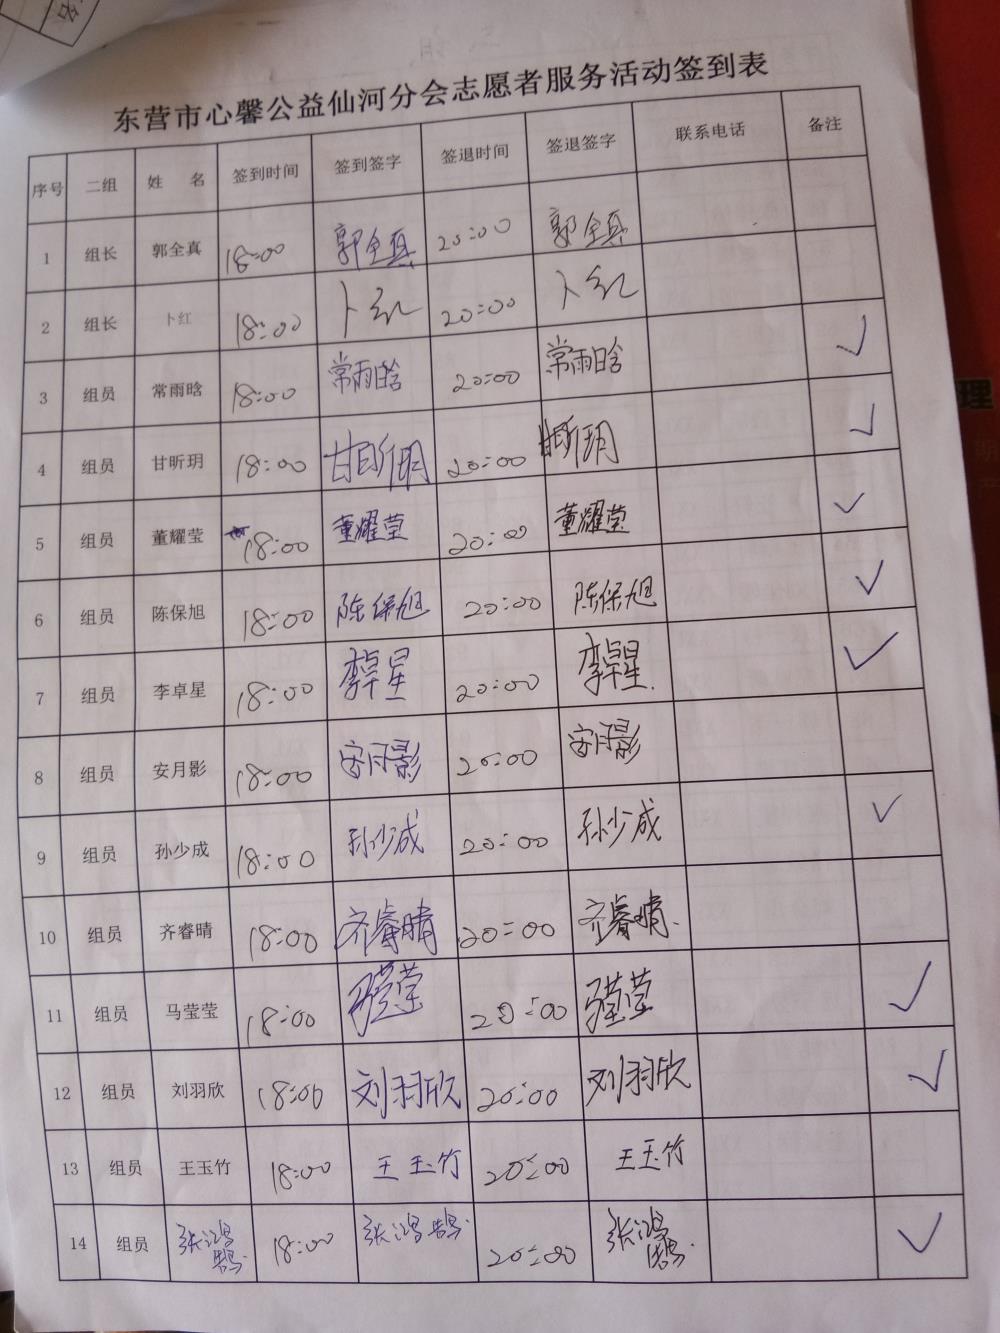 东营市心馨公益仙河分会志愿者服务活动签到表
序号 二组 姓 名 签到时间 签到签字 签退时间 签退签字 联系电话 备注
1 组长 郭全真 18:00 郭全真 20:00 郭全真
2 组长 卜红 18:00 卜红 20:00 卜红
3 组员 常雨晗 18:00 常雨晗 20:00 常雨晗 ✓
4 组员 甘昕玥 18:00 甘昕玥 20:00 甘昕玥 ✓
5 组员 董耀莹 18:00 董耀莹 20:00 董耀莹 ✓
6 组员 陈保旭 18:00 陈保旭 20:00 陈保旭 ✓
7 组员 李卓星 18:00 李卓星 20:00 李卓星 ✓
8 组员 安月影 18:00 安月影 20:00 安月影
9 组员 孙少成 18:00 孙少成 20:00 孙少成 ✓
10 组员 齐睿晴 18:00 齐睿晴 20:00 齐睿晴
11 组员 马莹莹 18:00 马莹莹 20:00 马莹莹 ✓
12 组员 刘羽欣 18:00 刘羽欣 20:00 刘羽欣 ✓
13 组员 王玉竹 18:00 王玉竹 20:00 王玉竹
14 组员 张鸿鹄 18:00 张鸿鹄 20:00 张鸿鹄 ✓
名
理